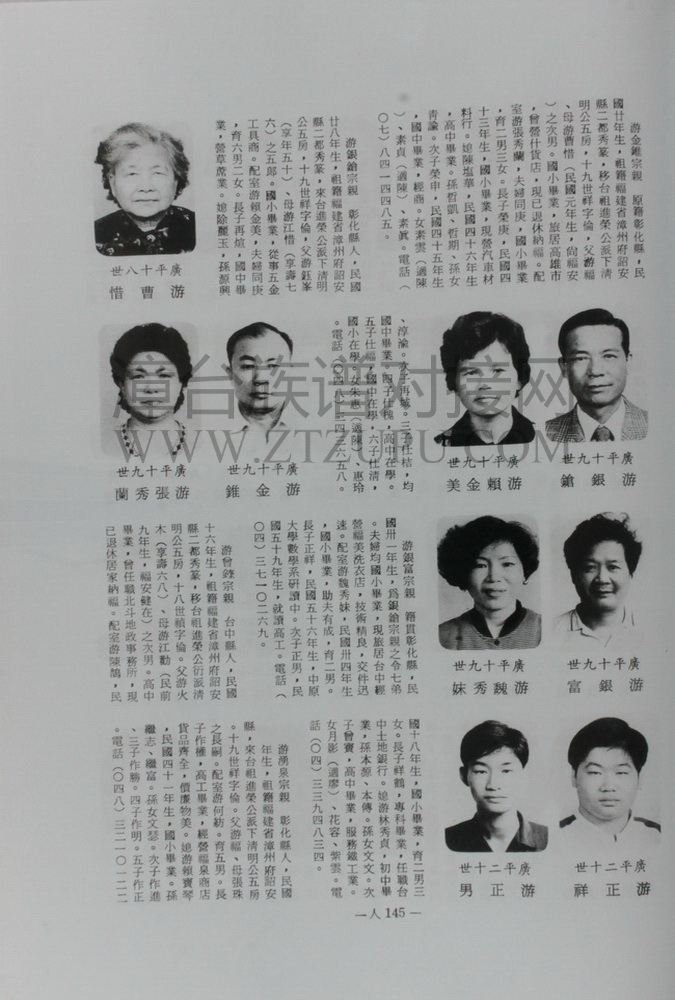 游金錐宗親　原籍彰化縣，民
國廿年生，祖籍福建省漳州府詔安
縣二都秀篆，移台祖進榮公派下清
明公五房，十九世祥字倫，父游福
、母游曹惜（民國元年生，尙福安
）之次男。國小畢業，旅居高雄市
，曾營什貨店，現已退休納福。配
室游張秀蘭，夫婦同庚，國小畢業
，育二男三女。長子榮庚，民國四
十三年生，國小畢業，現營汽車材
料行。媳陳塩華，民國四十六年生
，高中畢業。孫哲凱、哲期、孫女
靑諭。次子榮申，民國四十五年生
，國中畢業，經商。女素雲（適陳
）、素貞（適陳）、素眞。電話（
〇七）八四一四四八五。
游銀鎗宗親　彰化縣人，民國
廿八年生，祖籍福建省漳州府詔安
縣二都秀篆，來台進榮公派下清明
公五房，十九世祥字倫，父游鈺峯
（享年五十）、母游江惜（享壽七
六）之五郎。國小畢業，從事五金
工具商。配室游賴金美，夫婦同庚
，育六男二女。長子再煊，國中畢
業，營草蓆業。媳除麗玉，孫顏興
廣平十八世
游曹惜
廣平十九世
游銀鎗
廣平十九世
游賴金美
、淳渝。次子再城。三子仕桔，均
國中畢業，四子仕槐，高中在學。
五子仕福，國中在學，六子仕清，
國小在學，女朱惠（適陳）、惠玲
。電話（〇四八）三四三六五八。
廣平十九世
游金錐
廣平十九世
游張秀蘭
廣平十九世
游銀富
廣平十九世
游魏秀妹
游銀富宗親　籍貫彰化縣，民
國卅一年生，爲銀鎗宗親之令七弟
。夫婦均國小畢業，現旅居台中經
營福美洗衣店，技術精良，交件迅
速。配室游魏秀妹，民國卅四年生
，國小畢業，助夫有成，育二男。
長子正祥，民國五十六年生，中原
大學數學系研讀中。次子正男，民
國五十九年生，就讀高工。電話（
〇四）三七一〇二六九。
游曾錢宗親　台中縣人，民國
十六年生，祖籍福建省漳州府詔安
縣二都秀篆，移台祖進榮公衍派清
明公五房，十八世禎字倫。父游火
木（享壽六八）、母游江勸（民前
九年生，福安健在）之次男。高中
畢業，曾任職北斗地政事務所，現
已退休居家納福。配室游陳鵠，民
廣平二十世
游正祥
廣平二十世
游正男
國十八年生，國小畢業，育二男三
女。長子祥鶴，專科畢業，任職台
中土地銀行。媳游林秀貞，初中畢
業，孫本源、本傳。孫女文文。次
子曾寶，高中畢業，服務鐵工業。
女月影（適廖）、花容、紫雲。電
話（〇四）三三九四八三四。
游湧泉宗親　彰化縣人，民國
年生，祖籍福建省漳州府詔安
縣，來台祖進榮公派下清明公五房
。十九世祥字倫。父游福、母張珠
之長嗣。配室游何紡。育五男。長
子作權，高工畢業，經營福泉商店
，貨品齊全，價廉物美。媳游賴寶琴
，民國四十一年生，國小畢業。孫
繼志、繼富。孫女文瑟。次子作進
、三子作勝。四子作明。五子作正
。電話（〇四八）三二一〇一二二
—人145—
漳台族谱对接网
WWW.ZTZUPU.COM